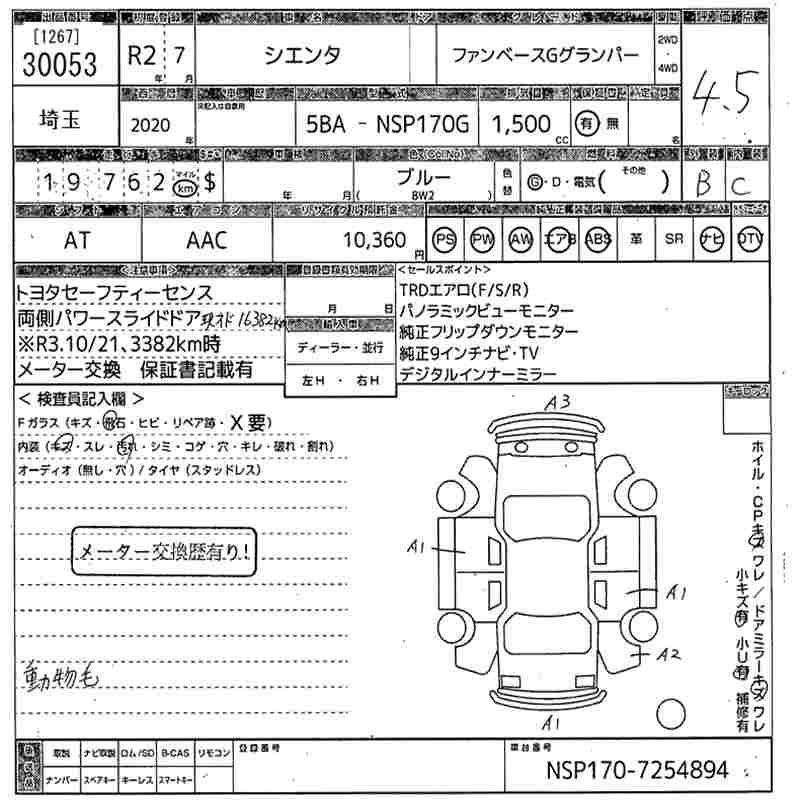 [1267]
30053
R2 年 7 月
シエンタ
ファンベースGグランパー
2WD・4WD
4.5
埼玉
2020 年
未記入は自家用
5BA - NSP170G
1,500 cc
有 無
名
19762 マイル km $
年 月
ブルー
( BW2 )
色替
G・D・電気( その他 )
B
C
AT
AAC
10,360 円
PS PW AW エアB ABS 革 SR ナビ DTV
<注意事項>
トヨタセーフティーセンス
両側パワースライドドア 現オド16382km
※R3.10/21、3382km時
メーター交換 保証書記載有
登録書類有効期限
月 日
輸入車
ディーラー・並行
左H ・ 右H
<セールスポイント>
TRDエアロ(F/S/R)
パノラミックビューモニター
純正フリップダウンモニター
純正9インチナビ・TV
デジタルインナーミラー
< 検査員記入欄 >
Fガラス (キズ・飛石・ヒビ・リペア跡・X要)
内装 (キズ・スレ・汚れ・シミ・コゲ・穴・キレ・破れ・割れ)
オーディオ (無し・穴) / タイヤ (スタッドレス)
メーター交換歴有り!
動物毛
A3
A1
A1
A2
A1
ホイル・CPキズワレ/ドアミラーキズワレ
小キズ有 小U有 補修有
取説 ナビ取説 ロム/SD B-CAS リモコン
ナンバー スペアキー キーレス スマートキー
登録番号
車台番号
NSP170-7254894